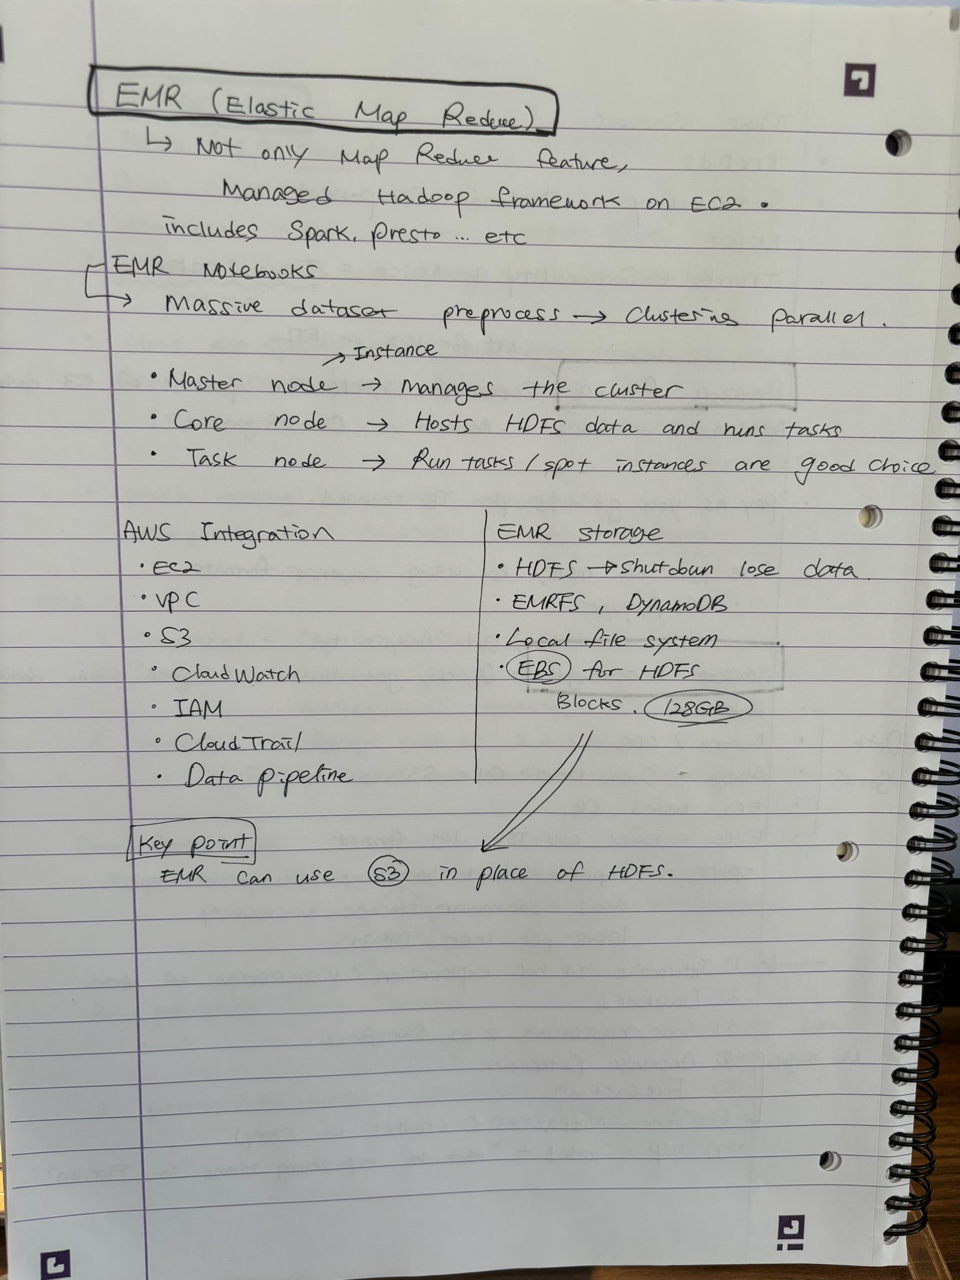 EMR (Elastic Map Reduce)
↳ Not only Map Reduce feature,
Managed Hadoop framework on EC2.
includes Spark, Presto ... etc
EMR Notebooks
→ Massive dataset preprocess → Clustering Parallel.
→ Instance
• Master node → manages the cluster
• Core node → Hosts HDFS data and runs tasks
• Task node → Run tasks / spot instances are good choice
AWS Integration
• EC2
• VPC
• S3
• CloudWatch
• IAM
• CloudTrail
• Data pipeline
EMR storage
• HDFS → shutdown lose data.
• EMRFS, DynamoDB
• Local file system
• EBS for HDFS
Blocks. 128GB
Key point
EMR can use S3 in place of HDFS.